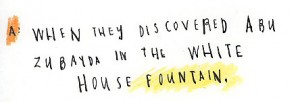 A: WHEN THEY DISCOVERED ABU
ZUBAYDA IN THE WHITE
HOUSE FOUNTAIN.